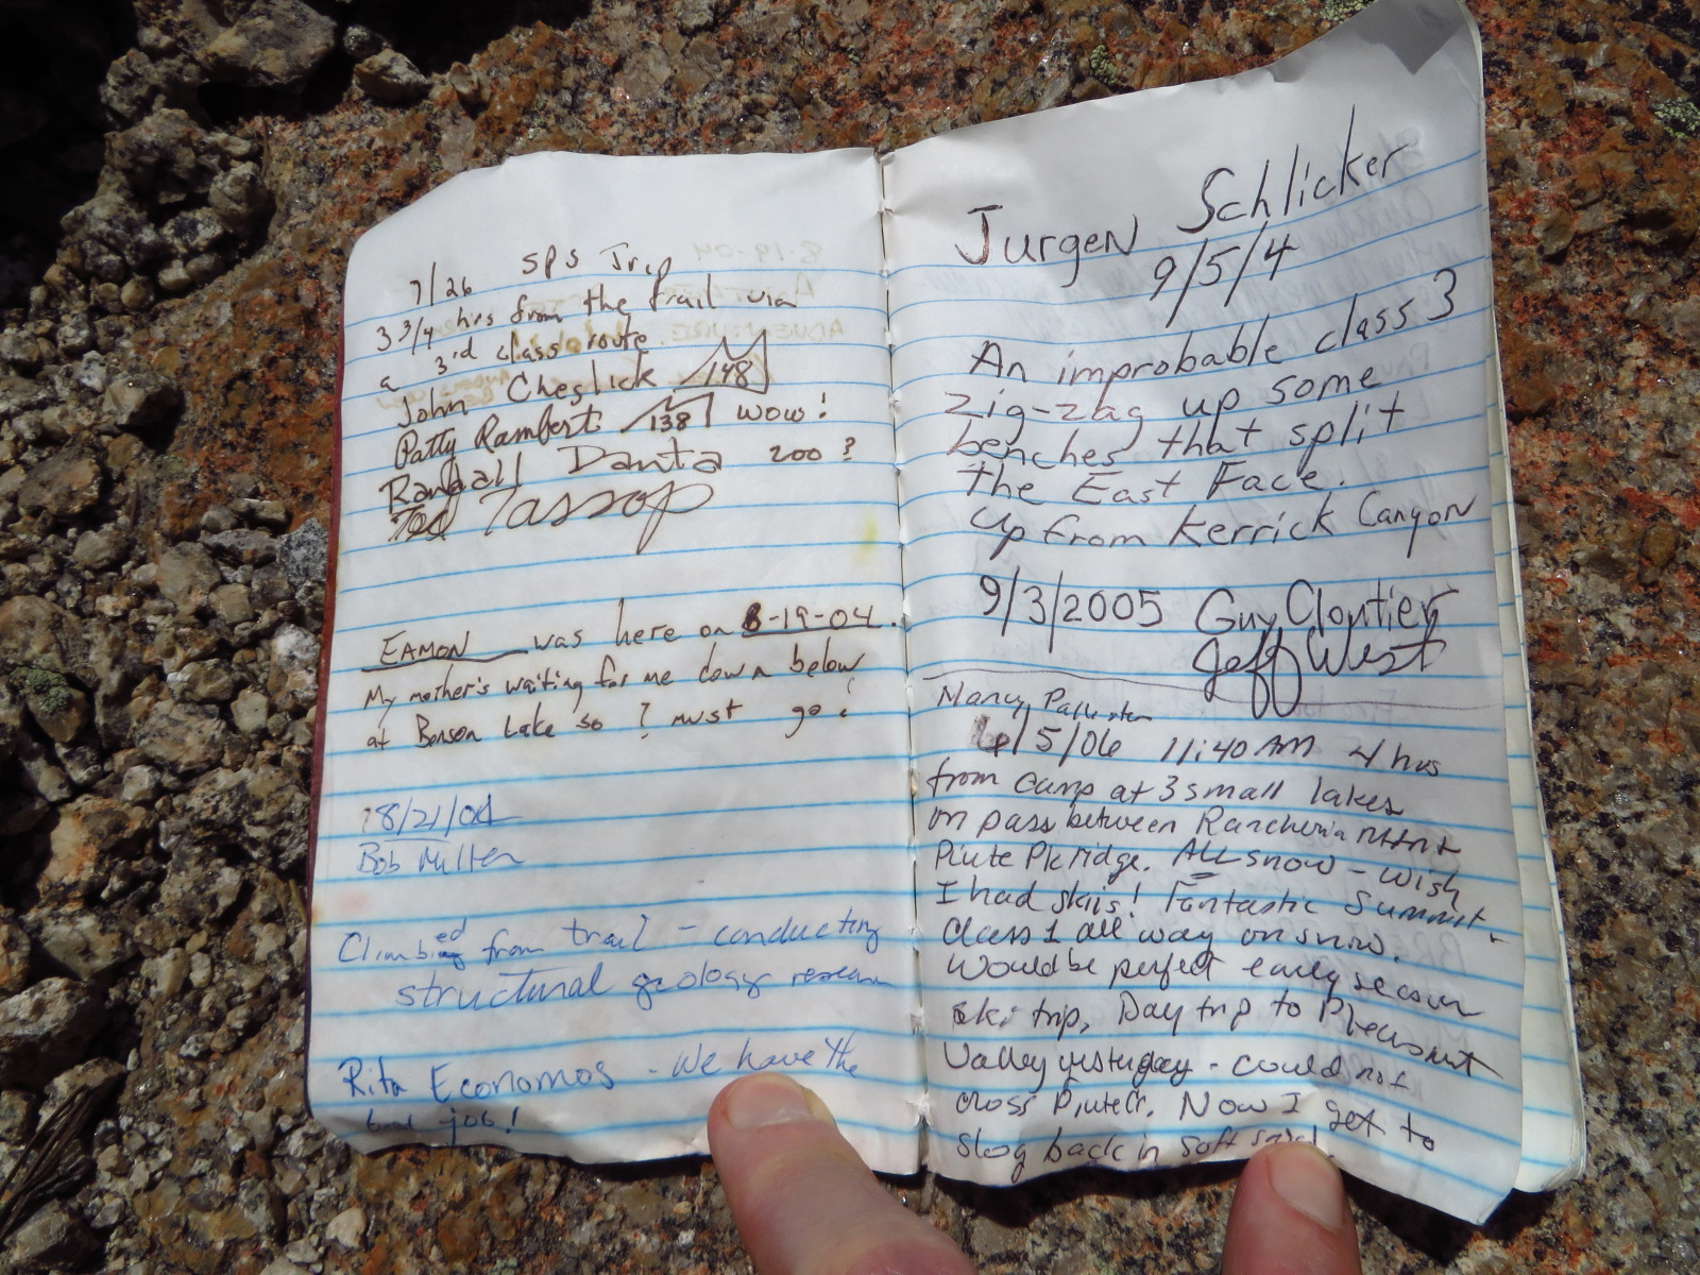 7/26 SPS Trip
3 3/4 hrs from the trail via
a 3rd class route
John Cheslick 148
Patty Rambert 138 wow!
Randall Danta 200?
Tassop
EAMON was here on 8-19-04.
My mother's waiting for me down below
at Benson Lake so I must go!
8/21/04
Bob Miller
Climbed from trail - conducting
structural geology research
Rita Economos - We have the
best job!
Jurgen Schlicker
9/5/4
An improbable class 3
zig-zag up some
benches that split
the East Face.
Up from Kerrick Canyon
9/3/2005 Guy Cloutier
Jeff West
Nancy
6/5/06 11:40 AM 4 hrs
from camp at 3 small lakes
on pass between Rancheria Mtn +
Piute Pk ridge. ALL snow - wish
I had skiis! Fantastic Summit.
Class 1 all way on snow.
Would be perfect early season
ski trip, Day trip to Pleasant
Valley yesterday - could not
cross Piute Cr. Now I get to
slog back in soft